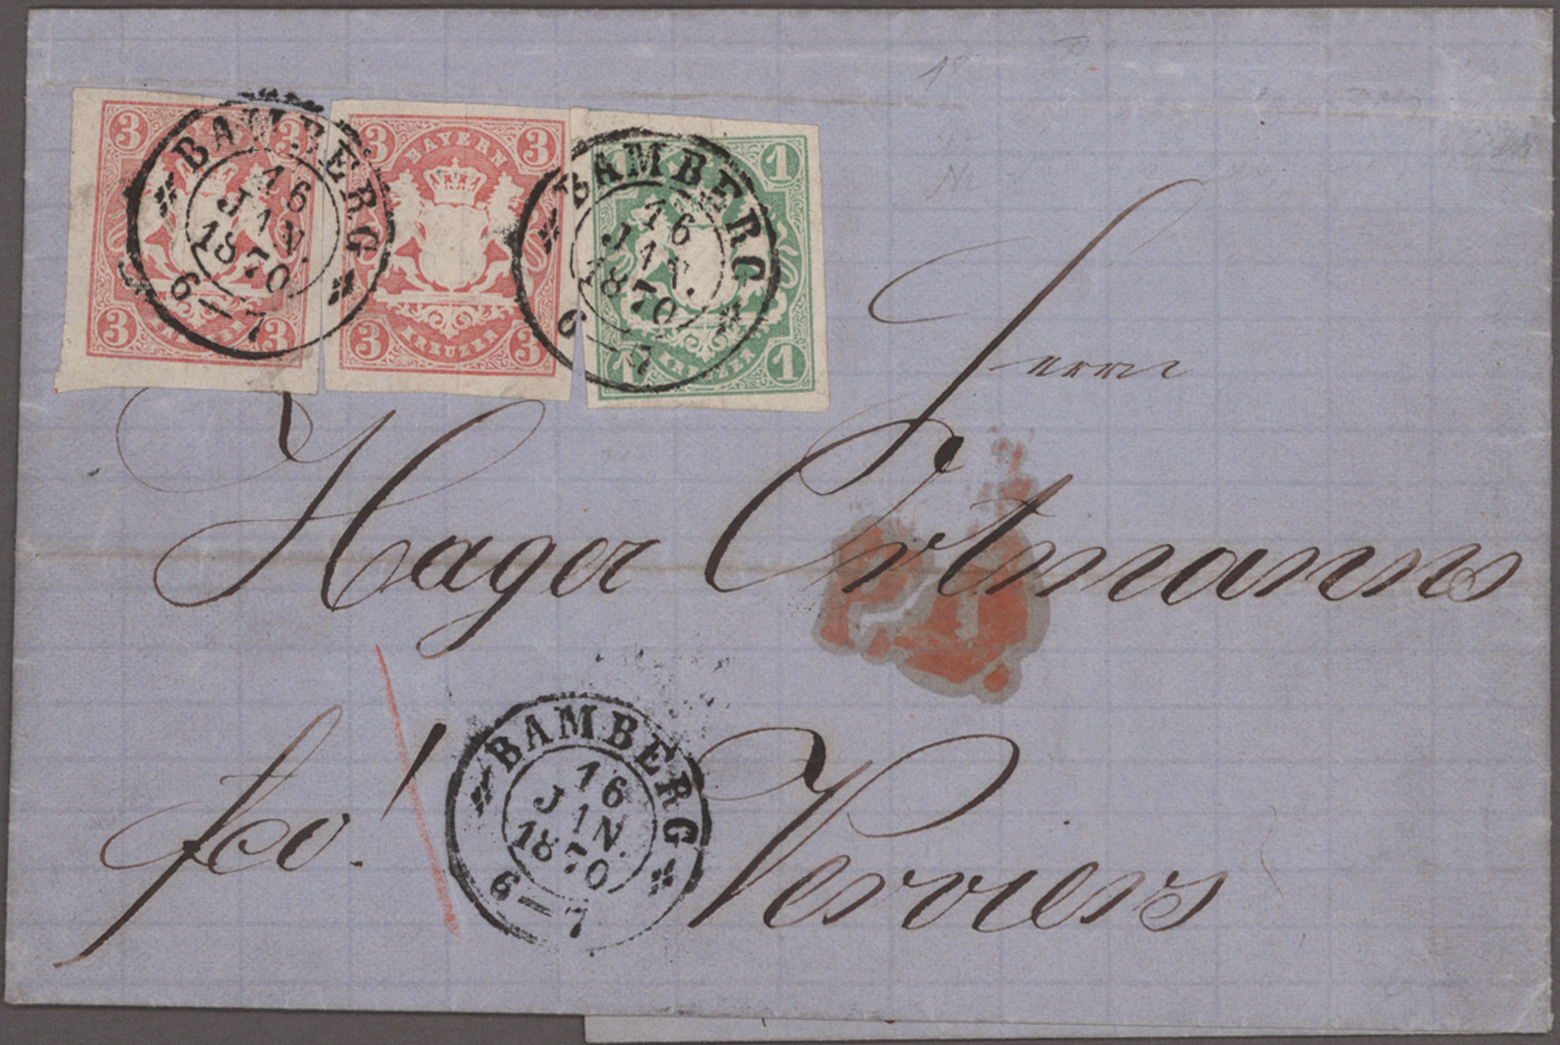 3 3
BAMBERG
16
JAN.
1870
6—7
3 3
3 BAYERN 3
3 KREUZER 3
1
BAMBERG
16
JAN.
1870
6—7
1 KREUZER 1
Herrn
Hager Ortmanns
P.D.
fco!
BAMBERG
16
JAN.
1870
6—7
Verviers